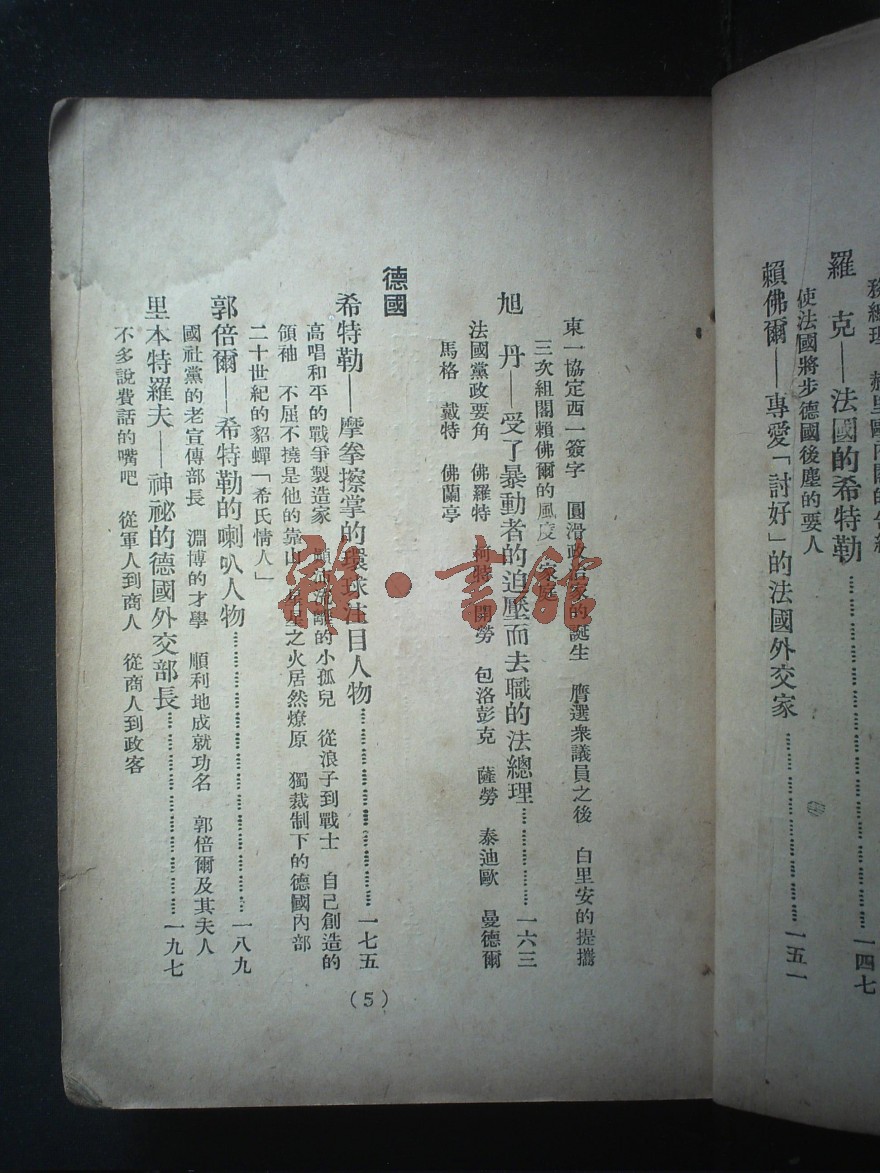 羅　克——法國的希特勒……一四七
使法國將步德國後塵的要人
賴佛爾——專愛「討好」的法國外交家……一五一
東一協定西一簽字　圓滑政治家的誕生　膺選衆議員之後　白里安的提攜
三次組閣賴佛爾的風度　家庭
旭　丹——受了暴動者的迫壓而去職的法總理……一六三
法國黨政要角　佛羅特　柯特　開勞　包洛彭克　薩勞　泰迪歐　曼德爾
馬格　戴特　佛蘭亭
德國
希特勒——摩拳擦掌的環球注目人物……一七五
高唱和平的戰爭製造家　的小孤兒　從浪子到戰士　自己創造的
領袖　不屈不撓是他的靠山　星星之火居然燎原　獨裁制下的德國內部
二十世紀的貂蟬「希氏情人」
郭倍爾——希特勒的喇叭人物……一八九
國社黨的老宣傳部長　淵博的才學　順利地成就功名　郭倍爾及其夫人
里本特羅夫——神祕的德國外交部長……一九七
不多說費話的嘴吧　從軍人到商人　從商人到政客
(5)
雜·書館